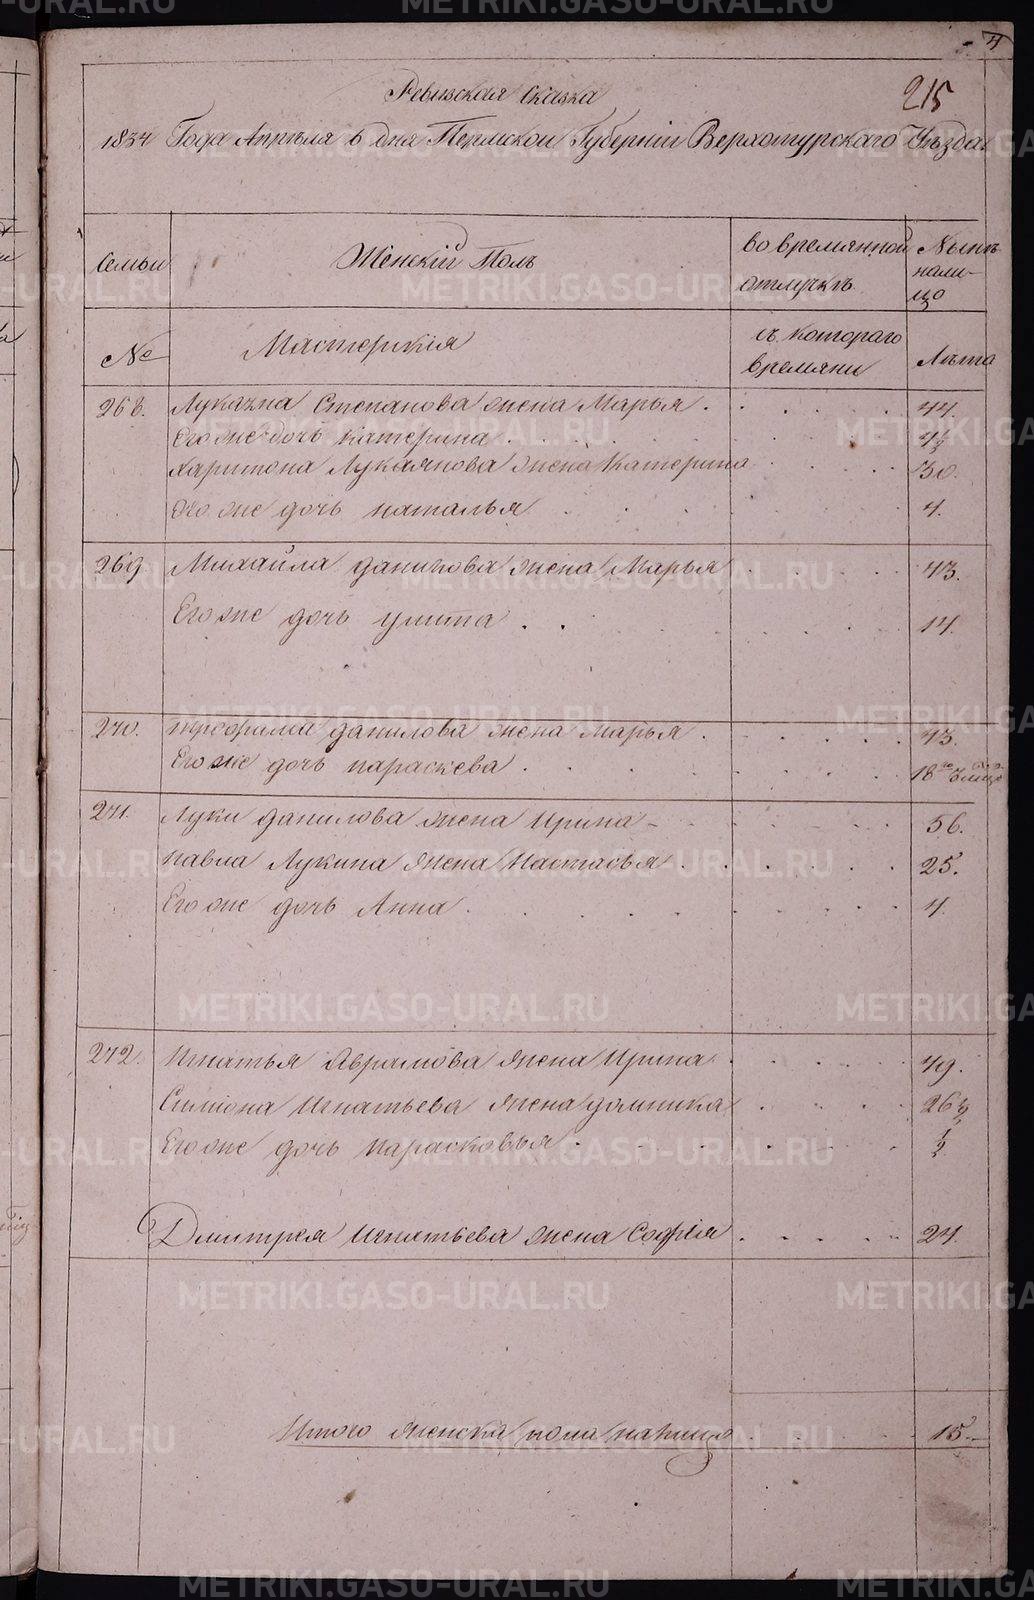 4
215
Ревизская Сказка
1834 Года Апреля 6 дня Пермской Губернии Верхотурскаго Уезда.
семьи
Женскій Полъ
во времянной отлучкѣ
Нынѣ нали-цо
№
Мастерскія
съ котораго времяни
Лѣта
268. Лукачна Степанова жена Марья 44.
Его же дочь катерина 4½
харитона Лукаянова жена Катерина 30.
его же дочь наталья 4.
269 Михайла данилова жена Марья 43.
Его же дочь улита 14.
270. трофима данилова жена Марья 43.
Его же дочь параскева 18
271. Луки данилова жена Ирина 56.
павла Лукина жена Настасья 25.
Его же дочь Анна 4.
272. Игнатья Аврамова жена Ирина 49.
Симіона Игнатьева жена домника 26½
Его же дочь парасковья ½
Дмитрея Игнатьева жена Софія 24.
Итого женска пола налицо 15.
METRIKI.GASO-URAL.RU